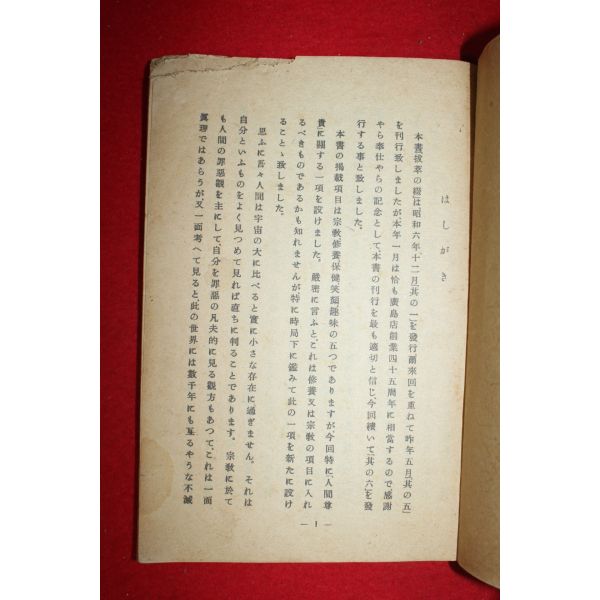 はしがき
本書拔萃の綴は昭和六年十二月「其の一」を發行爾來回を重ねて昨年五月「其の五」
を刊行致しましたが、本年一月は恰も廣島店創業四十五周年に相當するので感謝
やら奉仕やらの記念として、本書の刊行を最も適切と信じ、今回續いて「其の六」を發
行する事と致しました。
本書の掲載項目は宗敎、修養、保健、笑顏、趣味の五つでありますが今回特に「人間尊
貴」に關する一項を設けました。嚴密に言ふと、これは修養又は宗敎の項目に入れ
るべきものであるかも知れませんが特に時局下に鑑みて此の一項を新たに設け
ることゝ致しました。
思ふに吾々人間は宇宙の大に比べると實に小さな存在に過ぎません。それは
自分といふものをよく見つめて見れば直ちに判ることであります。宗敎に於て
も人間の罪惡觀を主にして自分を罪惡の凡夫的に見る觀方もあつて、これは一面
眞理ではあらうが又一面考へて見ると、此の世界には數千年にも亙るやうな不滅
— 1 —